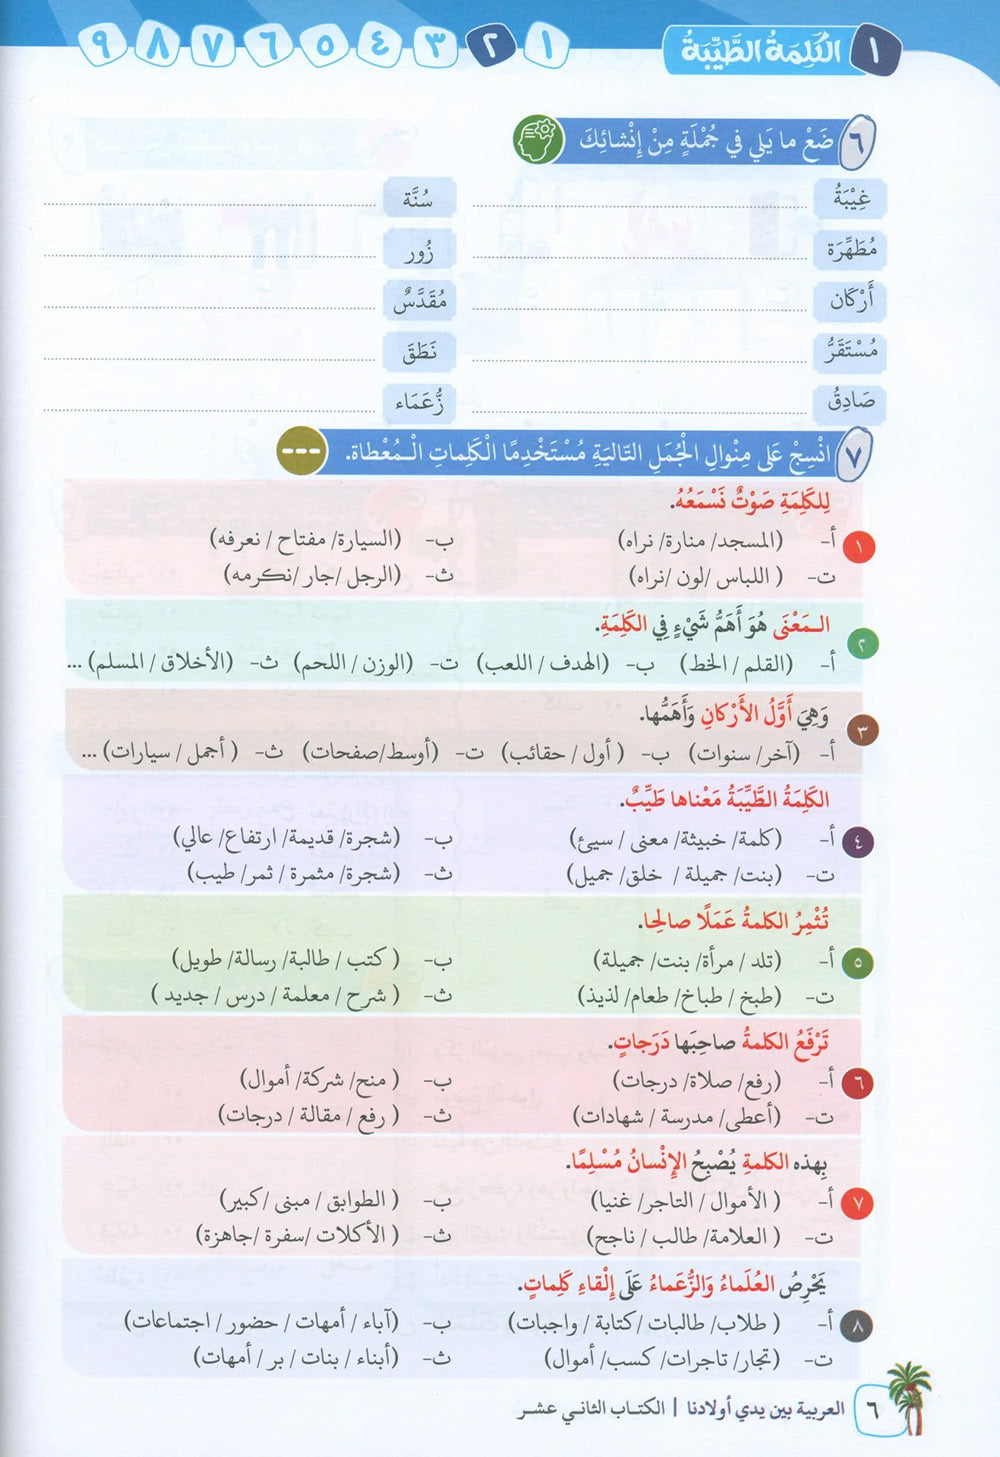 ١ الكَلِمَةُ الطَّيِّبَةُ ١ ٢ ٣ ٤ ٥ ٦ ٧ ٨ ٩
٦ ضَعْ ما يَلي في جُمْلَةٍ مِنْ إِنْشائِكَ
غِيْبَةُ سُنَّة
مُطَهِّرَة زُور
أَرْكَان مُقَدَّسٌ
مُسْتَقَرُّ نَطَقَ
صَادِقُ زُّعَمَاء
٧ انْسِجْ عَلى مِنْوالِ الْجُمَلِ التّالِيَةِ مُسْتَخْدِمًا الْكَلِماتِ الْـمُعْطاة.
لِلكَلِمَةِ صَوْتٌ نَسْمَعُهُ.
١ أ- (المسجد/ منارة/ نراه) ب- (السيارة/ مفتاح / نعرفه)
ت- ( اللباس /لون /نراه) ث- (الرجل /جار /نكرمه)
الـمَعْنَى هُوَ أَهَمُّ شَيْءٍ فِي الكَلِمَةِ.
٢ أ- (القلم / الخط) ب- (الهدف / اللعب) ت- (الوزن / اللحم) ث- (الأخلاق / المسلم) ...
وَهِيَ أَوَّلُ الأَرْكانِ وَأَهَمُّها.
٣ أ- (آخر/ سنوات) ب- ( أول / حقائب) ت- (أوسط/صفحات) ث- ( أجمل / سيارات) ...
الكَلِمَةُ الطَّيِّبَةُ مَعْناها طَيِّبٌ.
٤ أ- (كلمة/ خبيثة/ معنى / سيئ) ب- (شجرة/ قديمة/ ارتفاع/ عالي)
ت- (بنت/ جميلة / خلق/ جميل) ث- (شجرة/ مثمرة / ثمر/ طيب)
تُثْمِرُ الكلمةُ عَمَلًا صالِحا.
٥ أ- (تلد / مرأة/ بنت/ جميلة) ب- ( كتب / طالبة/ رسالة/ طويل)
ت- (طبخ / طباخ/ طعام/ لذيذ) ث- ( شرح / معلمة / درس / جديد )
تَرْفَعُ الكلمةُ صاحِبَها دَرَجاتٍ.
٦ أ- (رفع/ صلاة/ درجات) ب- ( منح/ شركة/ أموال)
ت- (أعطى/ مدرسة / شهادات) ث- ( رفع / مقالة / درجات)
بِهذه الكلمةِ يُصْبِحُ الإِنْسانُ مُسْلِمًا.
٧ أ- ( الأموال / التاجر/ غنيا) ب- ( الطوابق / مبنى /كبير)
ت- ( العلامة/ طالب / ناجح) ث- ( الأكلات /سفرة /جاهزة)
يَحْرِصُ العُلَماءُ وَالزُّعَماءُ عَلَى إِلْقاءِ كَلِماتٍ.
٨ أ- ( طلاب/ طالبات /كتابة / واجبات) ب- (آباء / أمهات / حضور / اجتماعات)
ت- (تجار/ تاجرات/ كسب/ أموال) ث- (أبناء / بنات / بر / أمهات)
٦ العربية بين يدي أولادنا | الكتـاب الثانـي عشـر